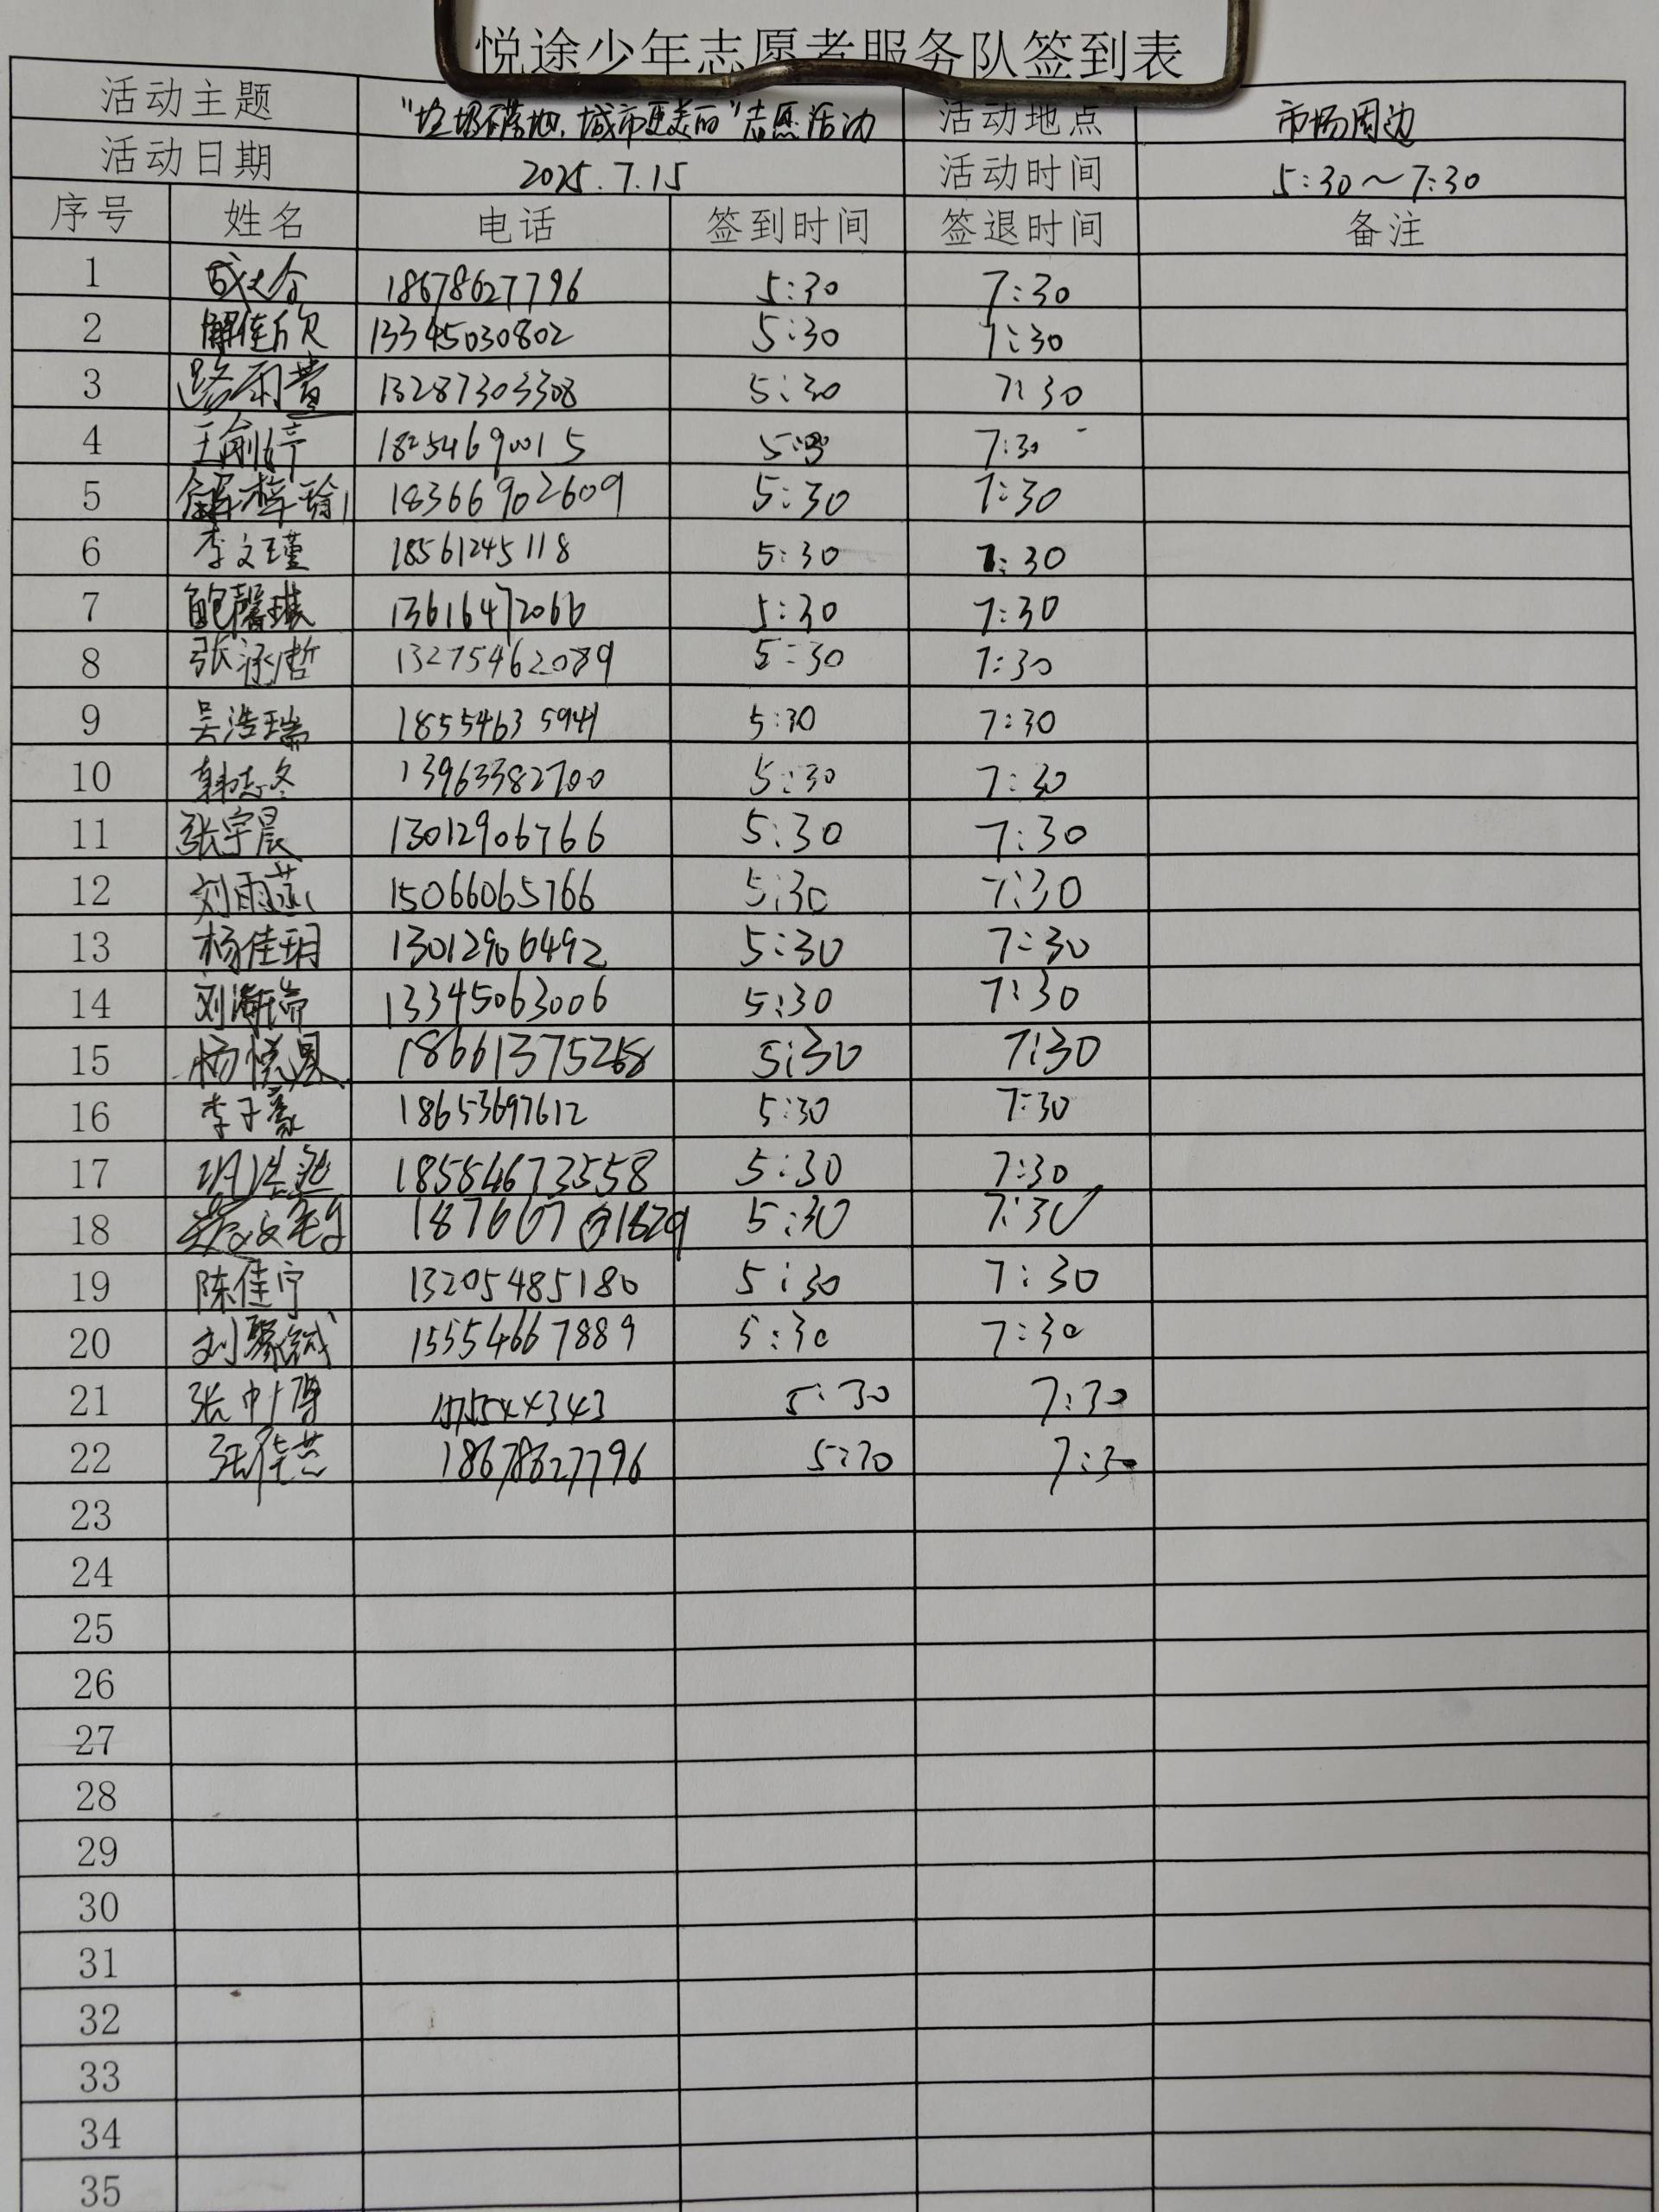 悦途少年志愿者服务队签到表
活动主题 "垃圾不落地,城市更美丽"志愿活动 活动地点 市场周边
活动日期 2025.7.15 活动时间 5:30~7:30
序号 姓名 电话 签到时间 签退时间 备注
1 18678627796 5:30 7:30
2 解佳欣 13345030802 5:30 7:30
3 路雨萱 13287303308 5:30 7:30
4 王俞婷 18254690015 5:30 7:30
5 解梓瑜 18366902609 5:30 7:30
6 李文瑾 18561245118 5:30 7:30
7 鲍馨琪 13616472066 5:30 7:30
8 张涵哲 13275462089 5:30 7:30
9 吴浩瑞 18554635941 5:30 7:30
10 韩志冬 13963382700 5:30 7:30
11 张宇晨 13012906766 5:30 7:30
12 刘雨菡 15066065766 5:30 7:30
13 杨佳玥 13012906492 5:30 7:30
14 刘 13345063006 5:30 7:30
15 杨悦 5:30 7:30
16 李子豪 18653697612 5:30 7:30
17 18584673558 5:30 7:30
18 5:30 7:30
19 陈佳宁 13205485180 5:30 7:30
20 刘 15554667889 5:30 7:30
21 张 5:30 7:30
22 张 18678627796 5:30 7:30
23
24
25
26
27
28
29
30
31
32
33
34
35